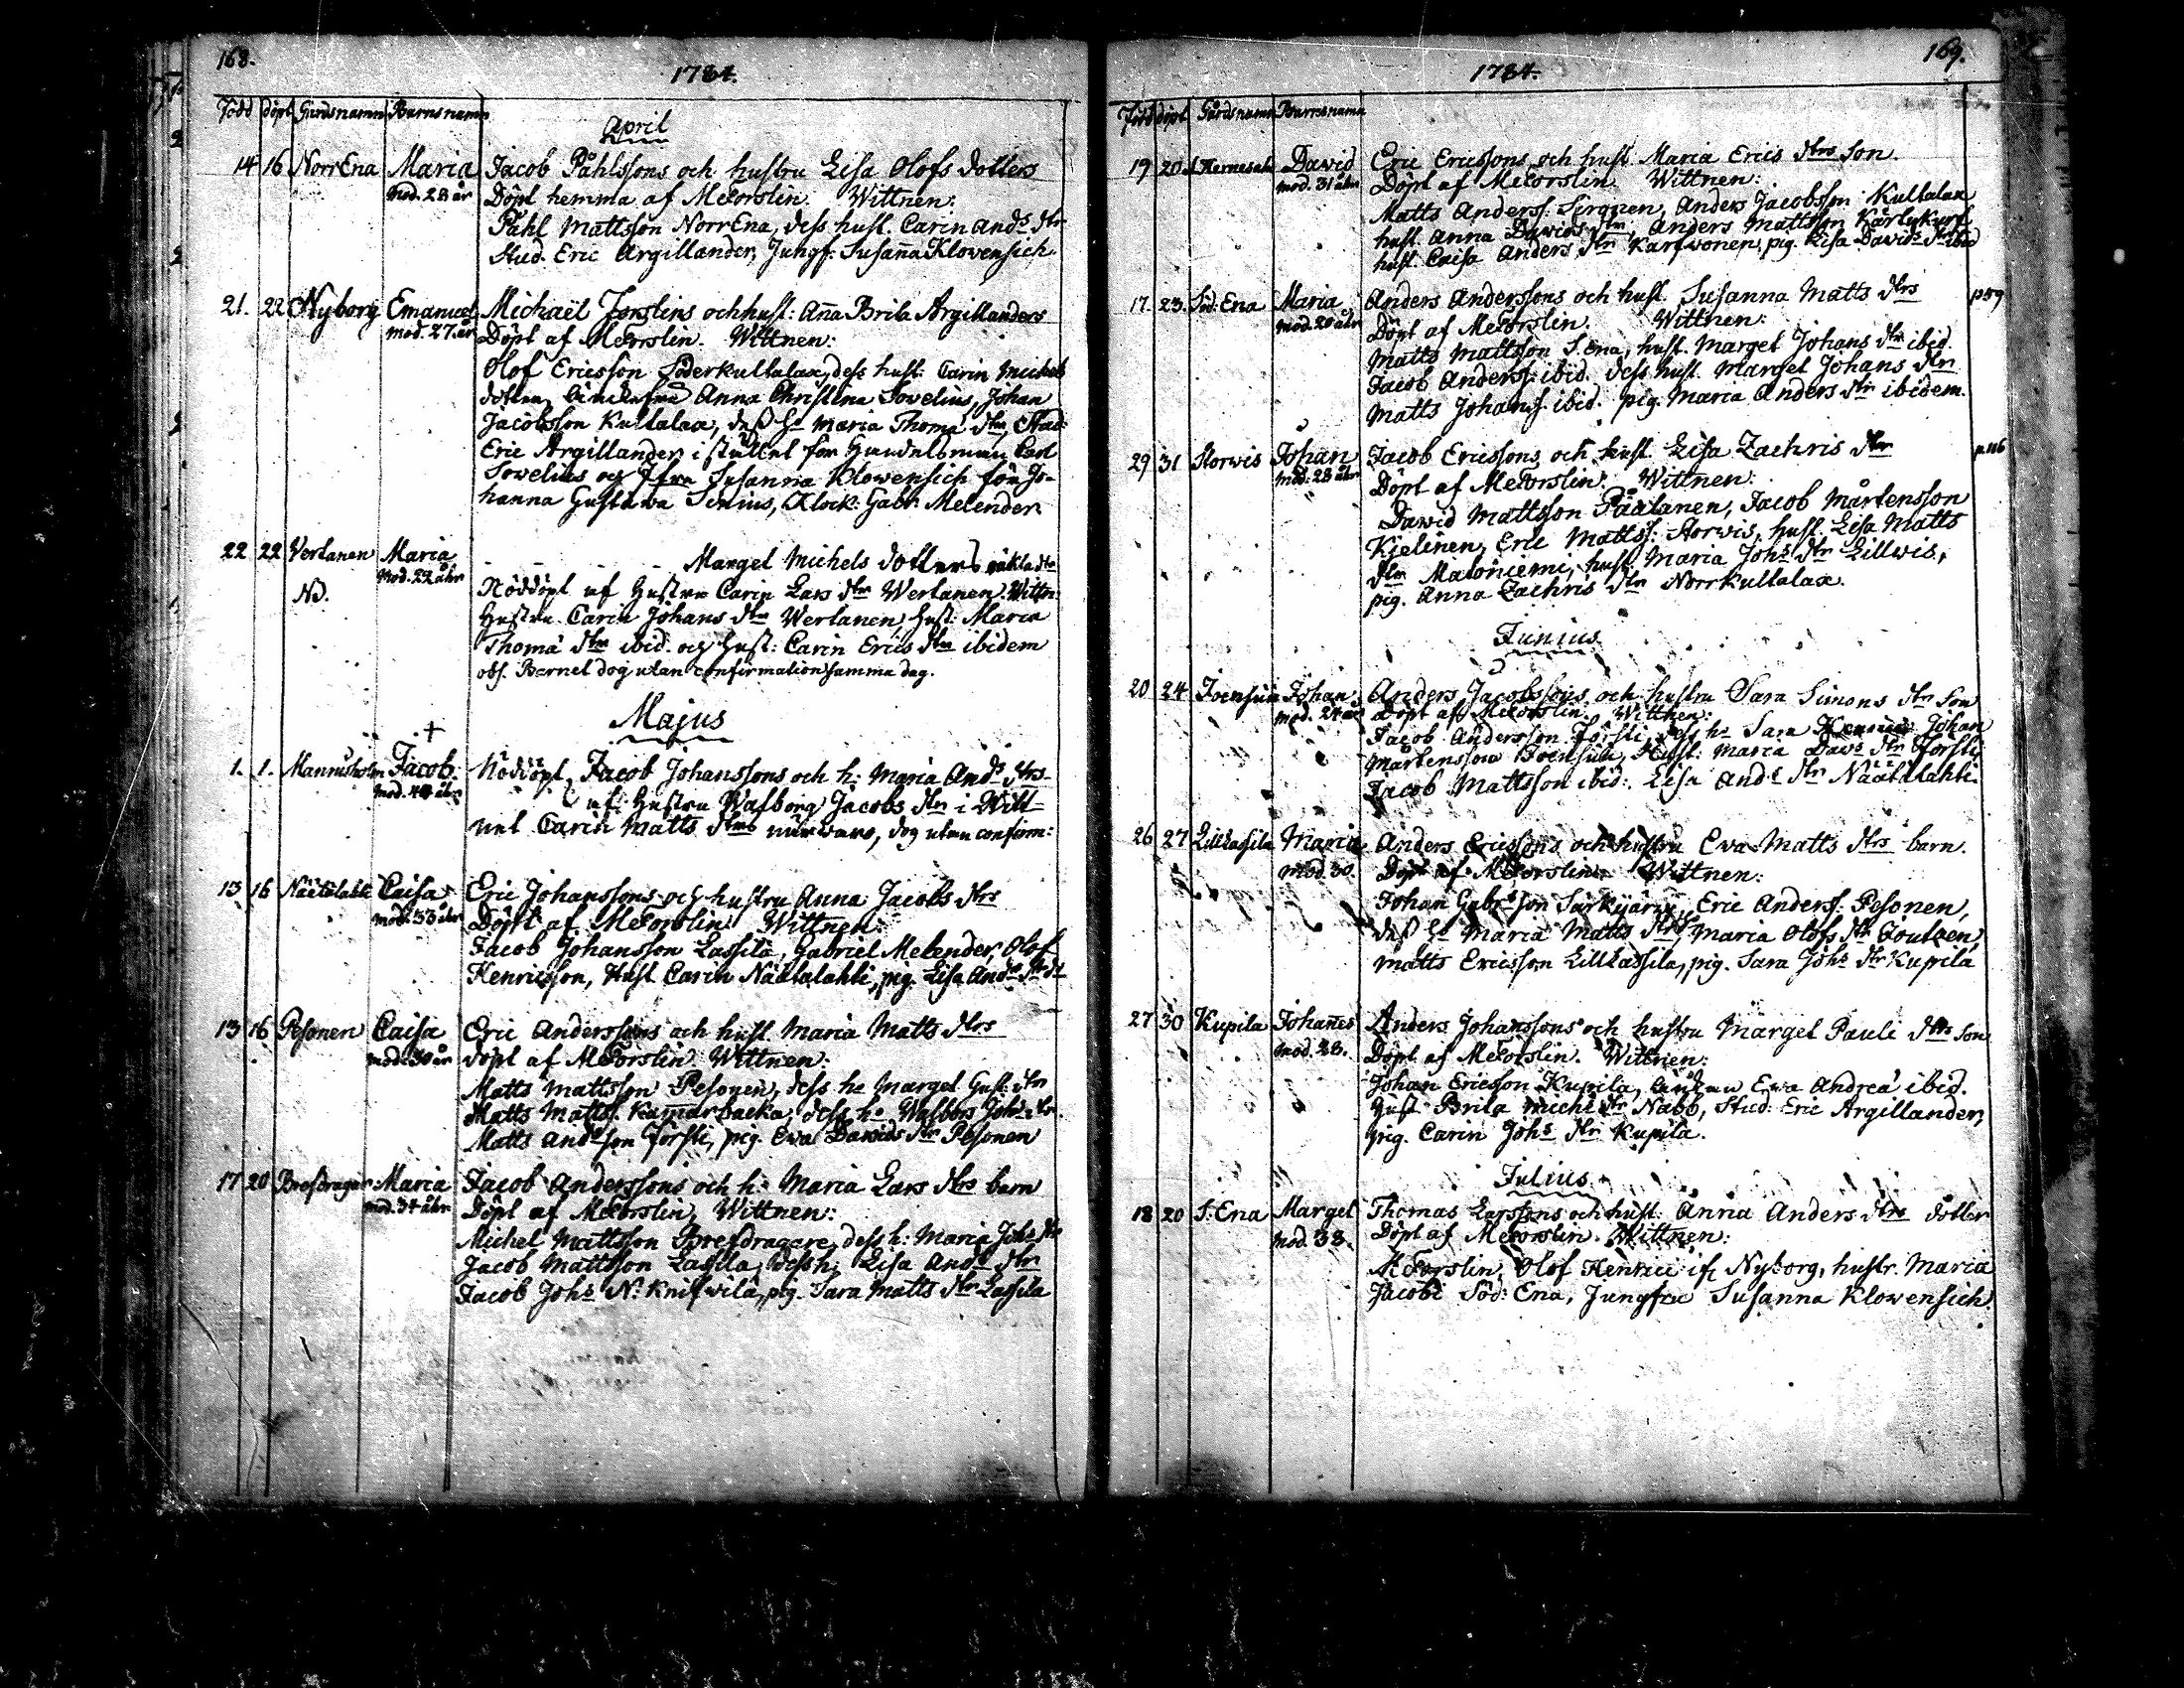 168.
1784.
Född döpt Gårdsnamn Barnsnamn
April
14 16 NorrEna Maria Jacob Påhlssons och hustru Lisa Olofs dotters
mod. 28 år Döpt hemma af MForslin. Wittnen:
Påhl Mattsson NorrEna, dess hust. Carin Ands dtr
Stud. Eric Argillander, Jungf: Susanna Klowensich
21. 22 Nyborg Emanuel Michaël Forslins och hust: Anna Brita Argillanders
mod. 27. år Döpt af MForslin. Wittnen:
Olof Ericsson Söderkultalax, dess hust: Carin Michels
dotter, Anna Christina Sovelius, Johan
Jacobsson Kultalax, dess ha Maria Thomæ dtr, Stud:
Eric Argillander i stället för Handelsman Carl
Sovelius och Jfru Susanna Klowensich för Jo-
hanna Gustava, Klock: Gabr. Melender
22 22 Vertanen Maria - - - - - Margel Michels dotters oäkta dtr
mod. 22 åhr
Nöddöpt af hustru Carin Lars dtr Wertanen. Wittn:
No.
hustru Carin Johans dtr Wertanen, hust: Maria
Thomæ dtr ibid. och hust: Carin Erics dtr ibidem
obs. Barnet dog utan confirmation samma dag.
Majus
+
1. 1. Mannusholm Jacob. Nöddöpt, Jacob Johanssons och h: Maria Ands dtrs
af hustru Walborg Jacobs dtr i Witt-
net Carin Matts dtrs närvaro, dog utan confirm:
13 16 Näätälahti Caisa Eric Johanssons och hustru Anna Jacobs dtrs
mod. 33 åhr Döpt af MForslin. Wittnen:
Jacob Johansson Lassila, Gabriel Melender, Olof
Henricsson, Hust Carin Näätälahti, pig. Lisa Ands dtr
13 16 Pesonen Caisa Eric Anderssons och hust. Maria Matts dtrs
mod. 30 år döpt af MForslin Wittnen:
Matts Mattsson Pesonen, dess ha Marget Gust: dtr
Matts Matts: Kamarbacka, dess ha Walbor Johs dtr.
Matts Andsson Försti, pig. Ewa Davids dtr Pesonen
17 20 Brefdragar Maria Jacob Anderssons och h: Maria Lars dtrs barn
mod. 34 åhr Döpt af MForslin, Wittnen:
Michel Mattsson Brefdragare, dess h: Maria Johs dtr
Jacob Mattsson Lassila, dess h: Lisa Ands dtr
Jacob Johs N: Knifwilä, pig. Sara Matts dtr Lassila
169.
1784.
Född döpt Gårdsnamn Barnsnamn
19 20 David Eric Ericssons och hust Maria Erics dtrs Son.
mod. 31 åhr Döpt af MForslin Wittnen:
Matts Anderss: Sironen, Anders Jacobsson Kultalax
hust. Anna Davids dtr, Anders Mattsson
hust. Caisa Anders dtr Karfwonen, pig. Lisa Davids dtr ibid
17. 23. Söd: Ena Maria Anders Anderssons och hust Susanna Matts dtrs p 59
mod. 20 åhr Döpt af MForslin. Wittnen:
Matts Mattsson S. Ena, hust. Marget Johans dtr ibid.
Jacob Anderss: ibid. dess hust. Marget Johans dtr
Matts Johans: ibid. pig. Maria Anders dtr ibidem.
29 31 Storwis Johan Jacob Ericssons och hust Lisa Zachris dtr p 116
mod. 28 åhr Döpt af MForslin. Wittnen:
David Mattsson Päätanen, Jacob Mårtensson
Kielinen, Eric Matts: Storwis, hust. Lisa Matts
dtr Matoniemi, hust. Maria Johs dtr Lillwis,
pig. Anna Zachris dtr Norrkultalax.
Junius
20 24 Joensuu Johan Anders Jacobssons och hustru Sara Simons dtr Son
mod. 24 år Döpt af MForslin. Wittnen:
Jacob Andersson Försti, dess ha Sara Johan
Mårtensson Joensuu, Hust: Maria Davs dtr Försti
Jacob Mattsson ibid: Lisa Ands dtr Näätälahti.
26 27 LillLassila Maria Anders Ericssons och hustru Ewa Matts dtrs barn.
mod. 30. Döpt af MForslin. Wittnen:
Johan Gabrsson Särkijärvi, Eric Anderss: Pesonen,
dess ha Maria Matts dtr, Maria Olofs dtr
Matts Ericsson LillLassila, pig. Sara Johs dtr Kupila
27 30 Kupila Johannes Anders Johanssons och hustru Marget Pauli dtr Son
mod. 28. Döpt af MForslin. Wittnen:
Johan Ericsson Kupila, Ewa Andreæ ibid.
Hust Brita Michs dtr Nabb, Stud: Eric Argillander,
pig. Carin Johs dtr Kupila.
Julius
18 20 S: Ena Marget Thomas Larssons och hust: Anna Anders dtrs dotter
mod. 38. Döpt af MForslin. Wittnen:
MForslin, Olof Henrici if: Nyborg, hustr. Maria
Jacobi Söd: Ena, Jungfru Susanna Klowensich.